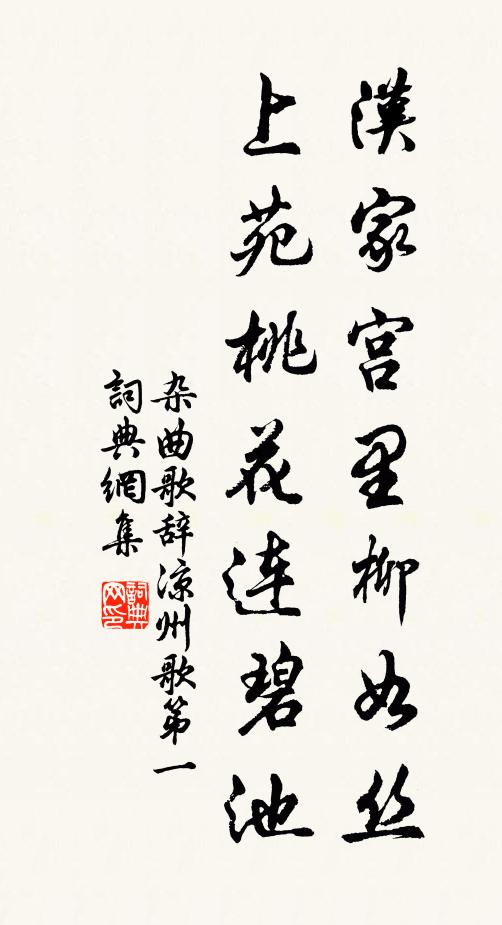 漢家宫里柳如丝
上苑桃花连碧池
杂曲歌辞凉州歌第一
詞典網集
詞典网印